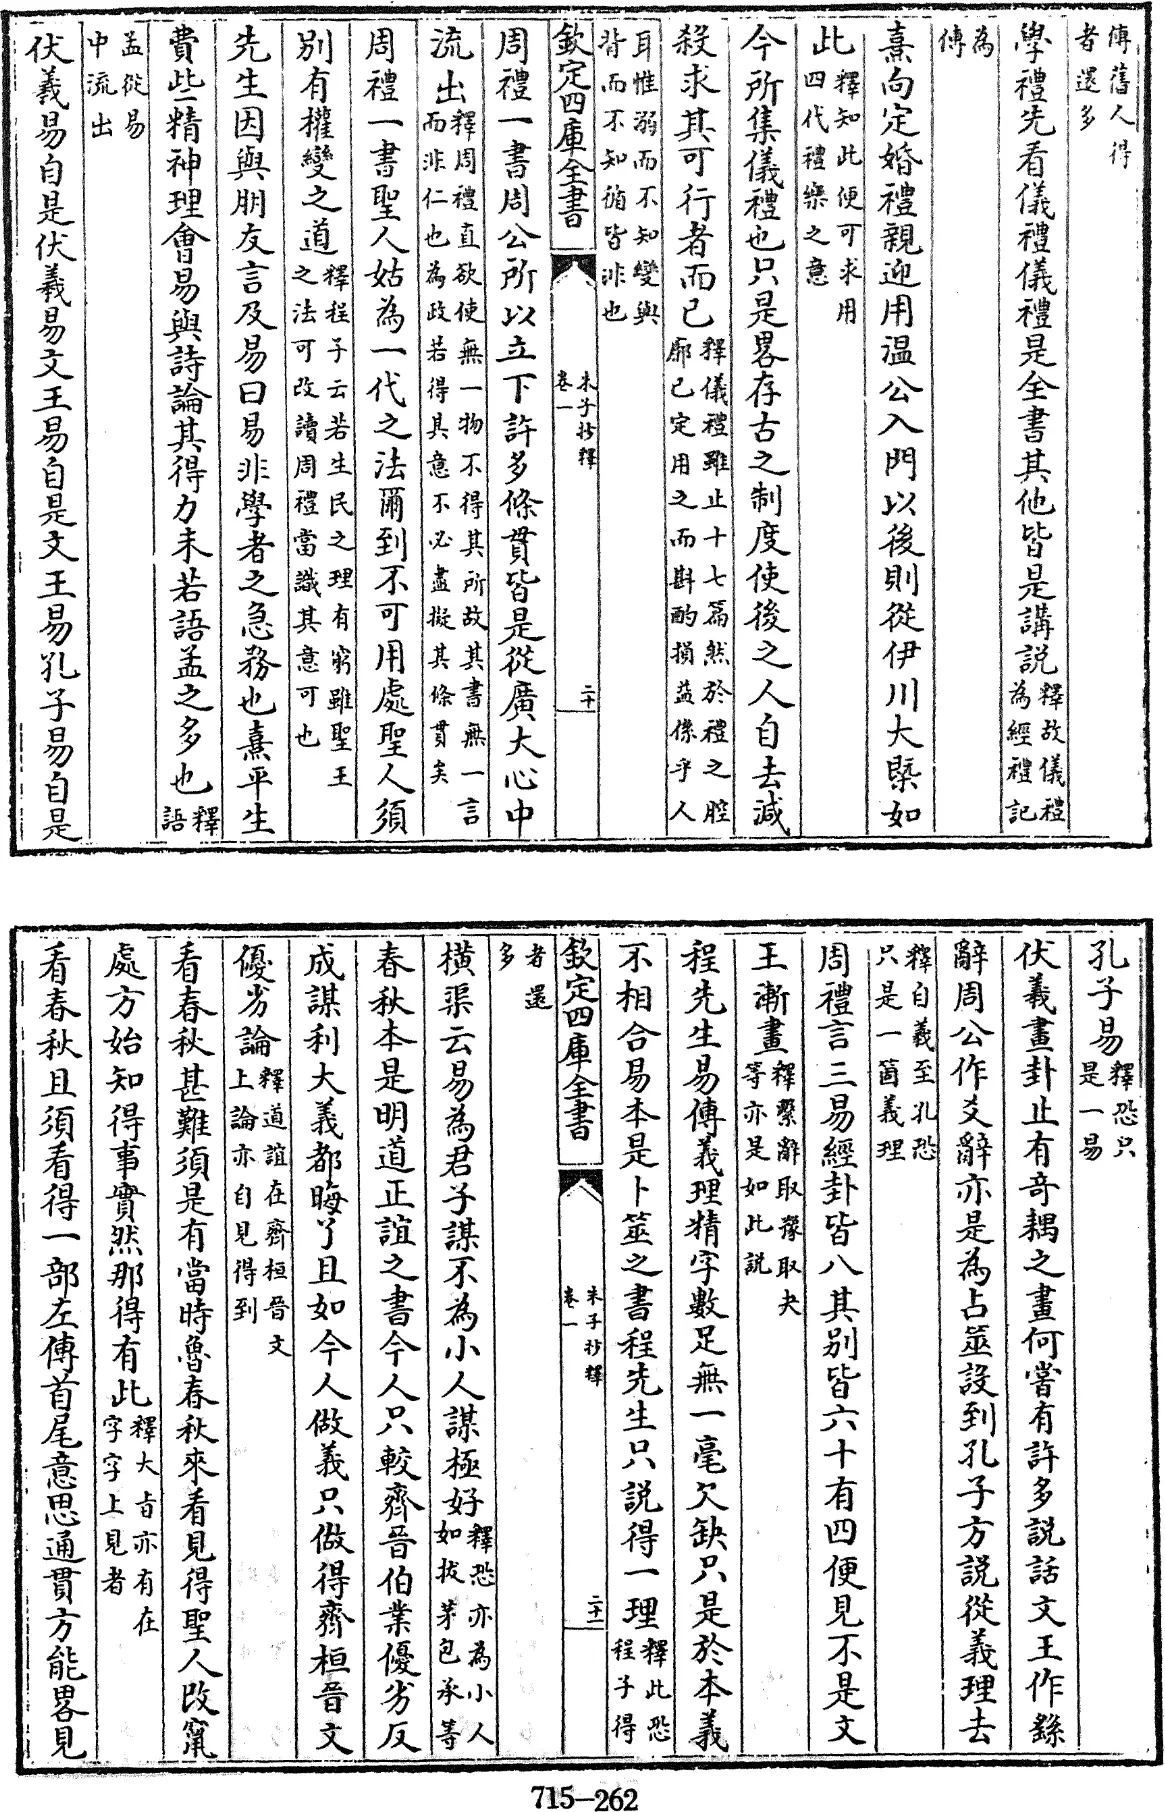 傳舊人得
者還多
學禮先看儀禮儀禮是全書其他皆是講説釋故儀禮為經禮記
為
傳
熹向定婚禮親迎用温公入門以後則從伊川大槩如
此釋知此便可求用四代禮樂之意
今所集儀禮也只是畧存古之制度使後之人自去減
殺求其可行者而已釋儀禮雖止十七篇然於禮之腔廓已定用之而斟酌損益係乎人
耳惟溺而不知變與
背而不知循皆非也
欽定四庫全書
朱子抄釋
卷一
二十
周禮一書周公所以立下許多條貫皆是從廣大心中
流出釋周禮直欲使無一物不得其所故其書無一言而非仁也為政若得其意不必盡擬其條貫矣
周禮一書聖人姑為一代之法爾到不可用處聖人須
别有權變之道釋程子云若生民之理有窮雖聖王之法可改讀周禮當識其意可也
先生因與朋友言及易曰易非學者之急務也熹平生
費些精神理會易與詩論其得力未若語孟之多也釋語
孟從易
中流出
伏羲易自是伏羲易文王易自是文王易孔子易自是
孔子易釋恐只是一易
伏羲畫卦止有奇耦之畫何嘗有許多説話文王作繇
辭周公作爻辭亦是為占筮設到孔子方説從義理去
釋自羲至孔恐
只是一箇義理
周禮言三易經卦皆八其别皆六十有四便見不是文
王漸畫釋繫辭取豫取夬等亦是如此説
程先生易傳義理精字數足無一毫欠缺只是於本義
不相合易本是卜筮之書程先生只説得一理釋此恐程子得
欽定四庫全書
朱子抄釋
卷一
二十一
者還
多
横渠云易為君子謀不為小人謀極好釋恐亦為小人如拔茅包承等
春秋本是明道正誼之書今人只較齊晉伯業優劣反
成謀利大義都晦了且如今人做義只做得齊桓晉文
優劣論釋道誼在齊桓晉文上論亦自見得到
看春秋甚難須是有當時魯春秋來看見得聖人改竄
處方始知得事實然那得有此釋大㫖亦有在字字上見者
看春秋且須看得一部左傳首尾意思通貫方能畧見
715-262